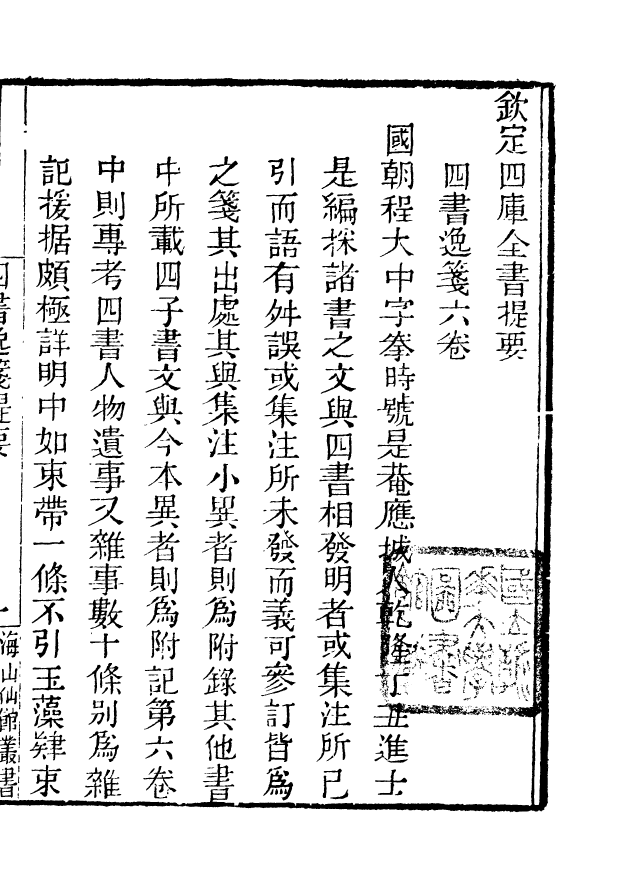 欽定四庫全書提要
四書逸箋六卷
國朝程大中字拳時號是菴應城人乾隆丁丑進士
是編採諸書之文與四書相發明者或集注所已
引而語有舛誤或集注所未發而義可參訂皆爲
之箋其出處其與集注小異者則爲附錄其他書
中所載四子書文與今本異者則爲附記第六卷
中則專考四書人物遺事又雜事數十條別爲雜
記援据頗極詳明中如束帶一條不引玉藻肄束
四書逸箋提要
一
海山仙館叢書